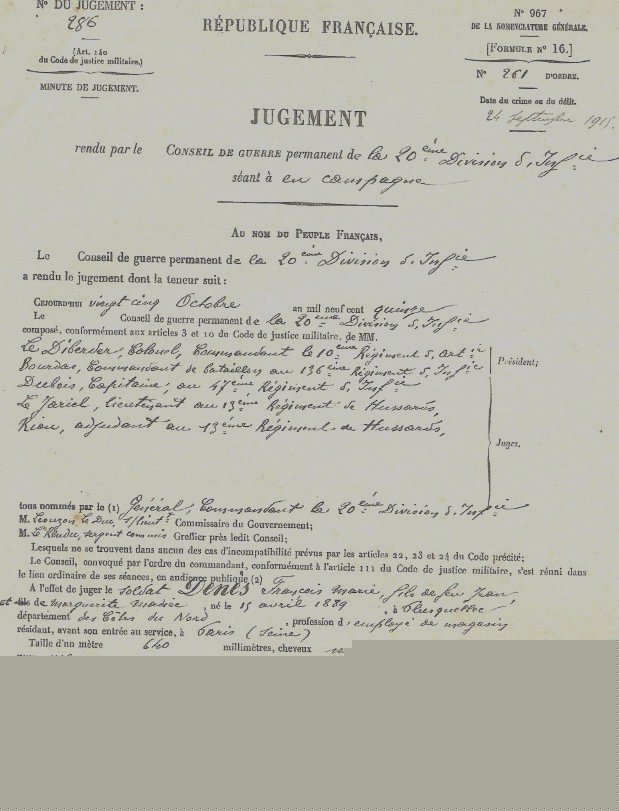 N° DU JUGEMENT :
286
(Art. 140
du Code de justice militaire.)
MINUTE DE JUGEMENT.
RÉPUBLIQUE FRANÇAISE.
N° 967
DE LA NOMENCLATURE GÉNÉRALE.
[FORMULE N° 16.]
N° 261 D'ORDRE.
Date du crime ou du délit.
24 septembre 1915.
JUGEMENT
rendu par le CONSEIL DE GUERRE permanent de la 20ème Division d'Infie
séant à en campagne
AU NOM DU PEUPLE FRANÇAIS,
Le Conseil de guerre permanent de la 20ème Division d'Infie
a rendu le jugement dont la teneur suit :
CEJOURD'HUI vingt cinq Octobre an mil neuf cent quinze
Le Conseil de guerre permanent de la 20ème Division d'Infie
composé, conformément aux articles 3 et 10 du Code de justice militaire, de MM.
Le Diberder, Colonel, Commandant le 10ème Régiment d'Artie
Président;
Bourdas, Commandant de bataillon au 136ème Régiment d'Infie
Dubois, Capitaine, au 47ème Régiment d'Infie
Le Jariel, lieutenant au 13ème Régiment de Hussards,
Riou, adjudant au 13ème Régiment de Hussards,
Juges.
tous nommés par le (1) Général, Commandant la 20ème Division d'Infie
M. Le Duc, s/lieutt Commissaire du Gouvernement;
M. sergent commis Greffier près ledit Conseil;
Lesquels ne se trouvent dans aucun des cas d'incompatibilité prévus par les articles 22, 23 et 24 du Code précité;
Le Conseil, convoqué par l'ordre du commandant, conformément à l'article 111 du Code de justice militaire, s'est réuni dans
le lieu ordinaire de ses séances, en audience publique (2)
À l'effet de juger le soldat DENIS François Marie, fils de feu Jean,
et de Marguerite , né le 15 avril 1889 , à Plusquellec
département des Côtes du Nord , profession d'employé de magasin
résidant, avant son entrée au service, à Paris (Seine)
Taille d'un mètre 640 millimètres, cheveux